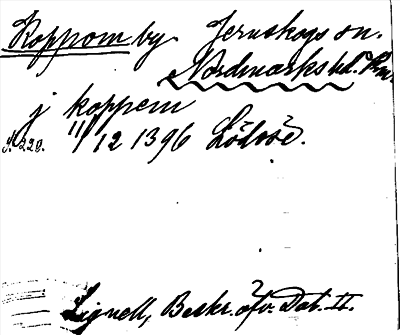 Koppom by Jernskogs sn.
Nordmarks hd. Vrm.
j koppem
s. 228. 11/12 1396 Lödöse.
Lignell, Beskr. öfv. Dal. II.